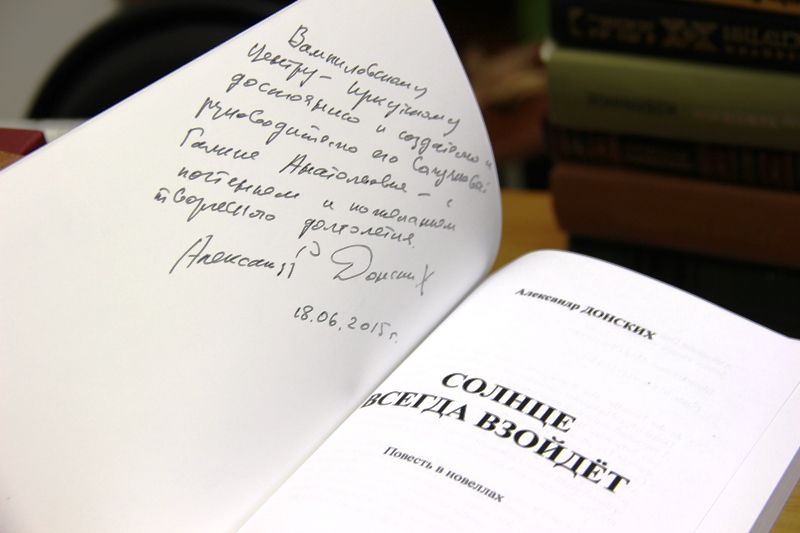 Вампиловскому
Центру – Иркутскому
достоянию и создателю и
руководителю его
Галине Анатольевне – с
почтением и пожеланием
творческого долголетия.
Александр Донских
18.06.2015г.
Александр ДОНСКИХ
СОЛНЦЕ
ВСЕГДА ВЗОЙДЁТ
Повесть в новеллах